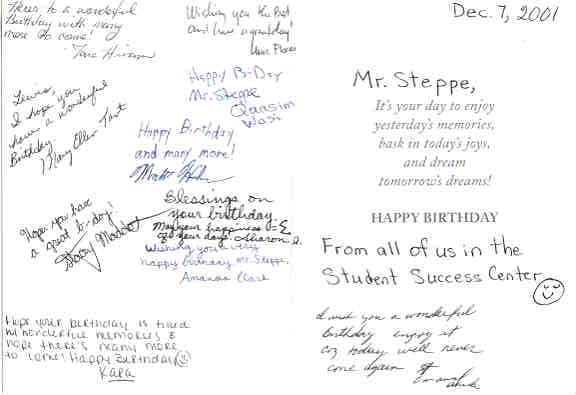 Heres to a wonderful
Birthday with many
more to come!
Wishing you the Best
and have a great day!
Lewis,
I hope you
have a wonderful
Birthday
Mary Ellen Tart
Happy B-Day
Mr. Steppe
Qaasim
Wasi
Happy Birthday
and many more!
Hope you have
a great b-day!
Stacy
Blessings on
your birthday.
May your happiness
your days. Sharon
Wishing you very
happy birthday Mr. Steppe.
Amanda Clark
Hope your birthday is filled
w/ wonderful memories &
hope there's many more
to come! Happy Birthday
Kara
Dec. 7, 2001
Mr. Steppe,
It's your day to enjoy
yesterday's memories,
bask in today's joys,
and dream
tomorrow's dreams!
HAPPY BIRTHDAY
From all of us in the
Student Success Center
I wish you a wonderful
birthday enjoy it
coz today will never
come again